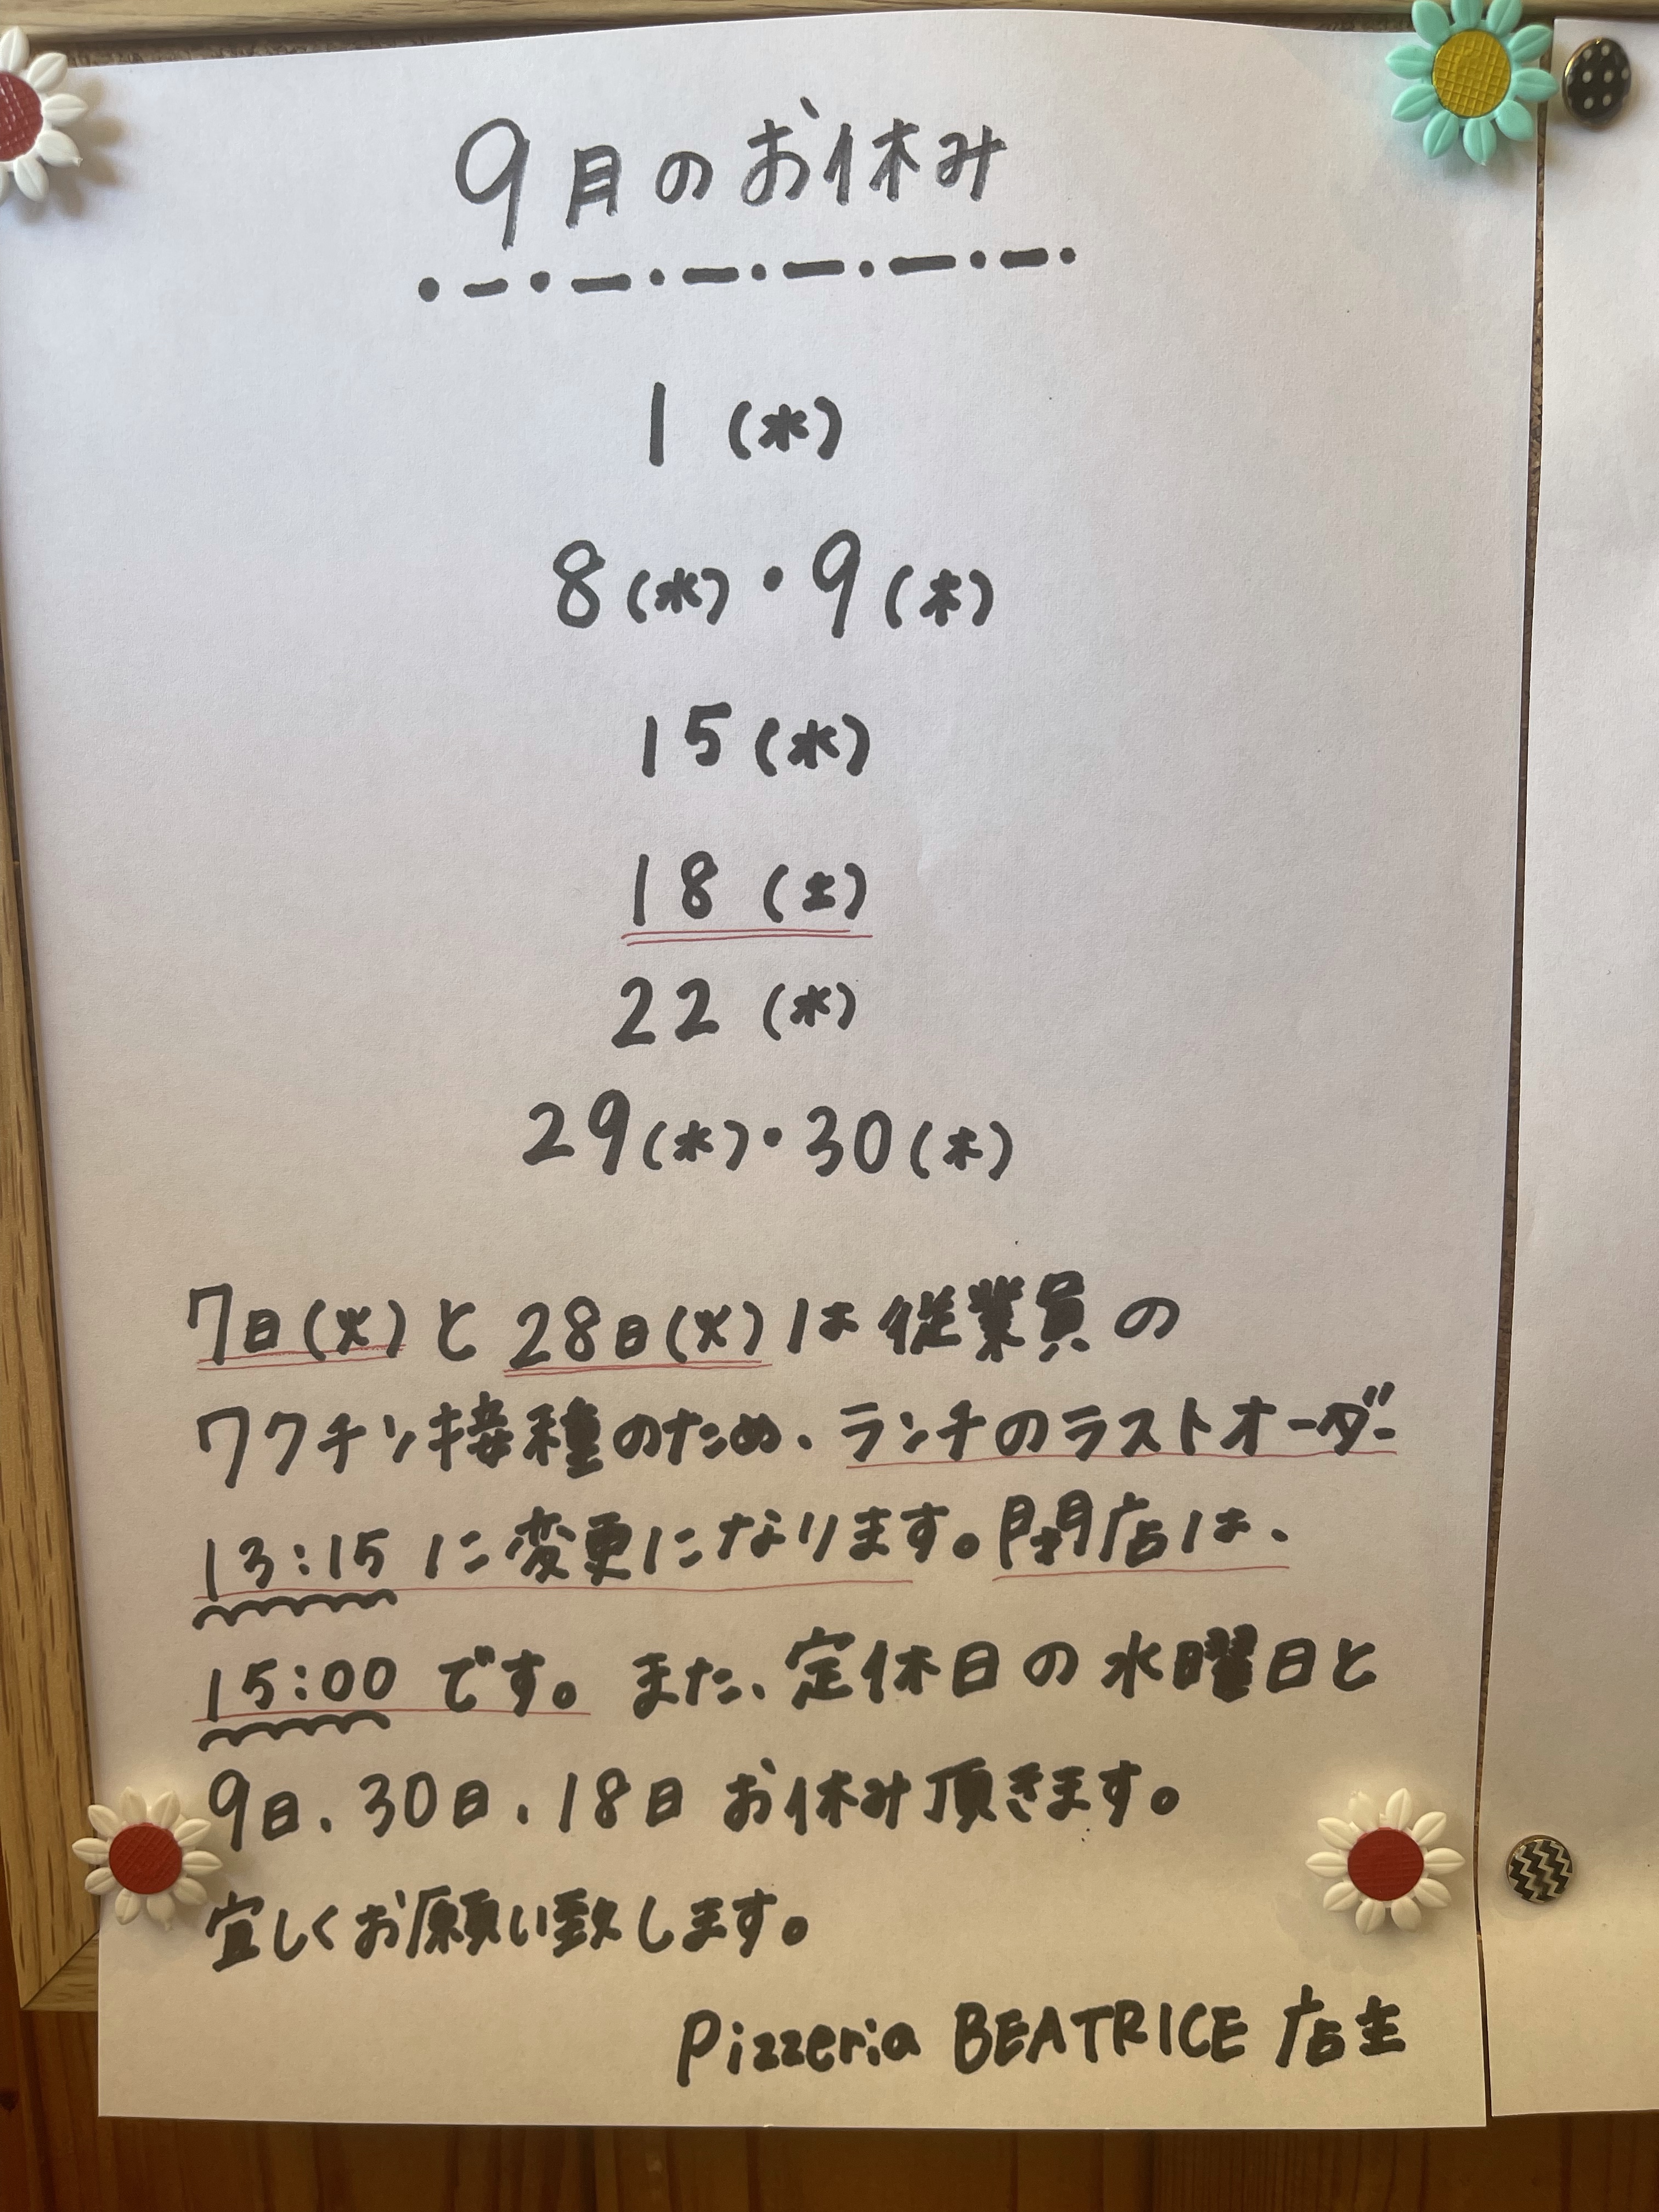 9月のお休み
1 (水)
8(水)・9(木)
15(水)
18 (土)
22 (水)
29(水)・30(木)
7日(火)と28日(火)は従業員の
ワクチン接種のため、ランチのラストオーダー
13:15に変更になります。閉店は、
15:00です。また、定休日の水曜日と
9日、30日、18日お休み頂きます。
宜しくお願い致します。
Pizzeria BEATRICE 店主